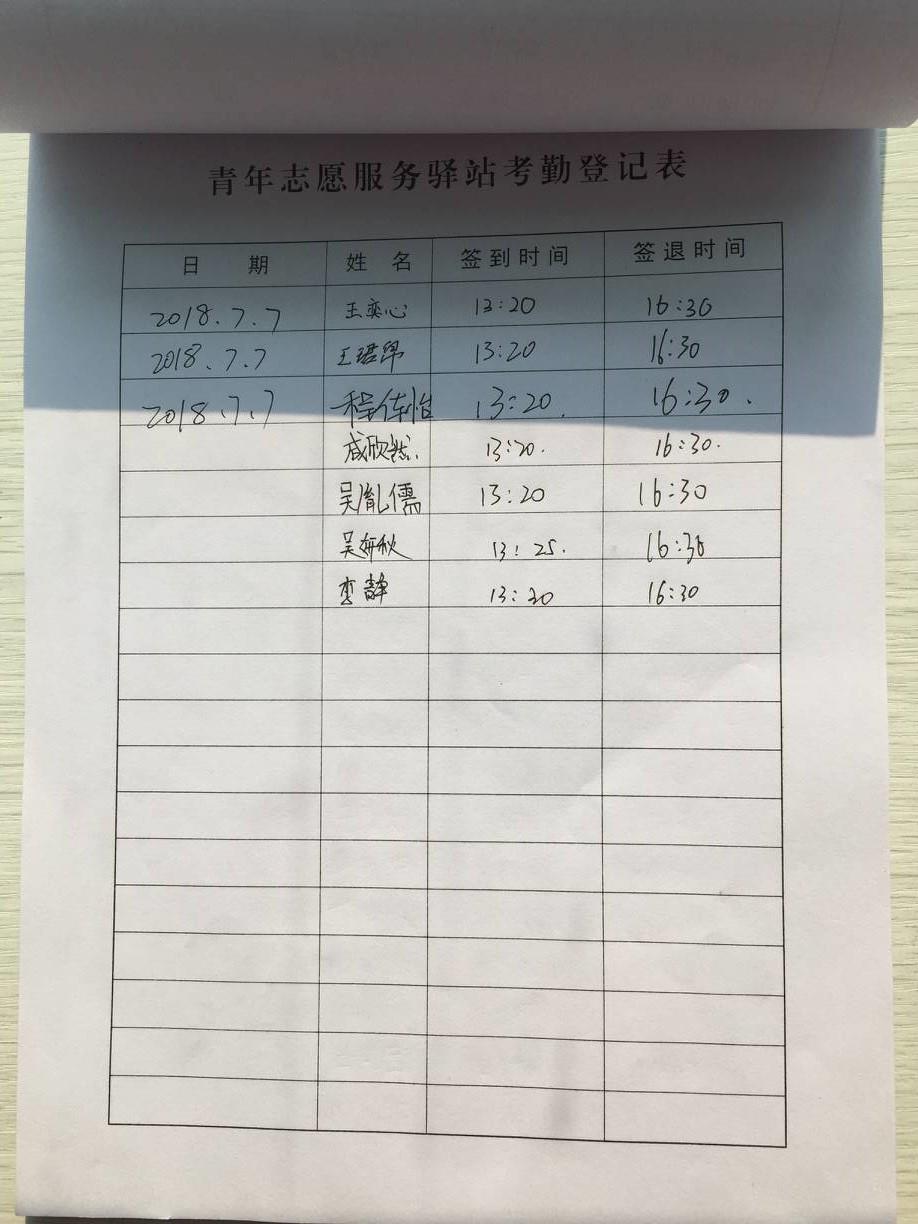 青年志愿服务驿站考勤登记表
日 期 姓 名 签到时间 签退时间
2018.7.7 王奕心 13:20 16:30
2018.7.7 王珺 13:20 16:30
2018.7.7 程佳怡 13:20. 16:30.
戚欣然. 13:20. 16:30.
吴胤儒 13:20 16:30
吴妍秋 13:25. 16:30
李静 13:20 16:30